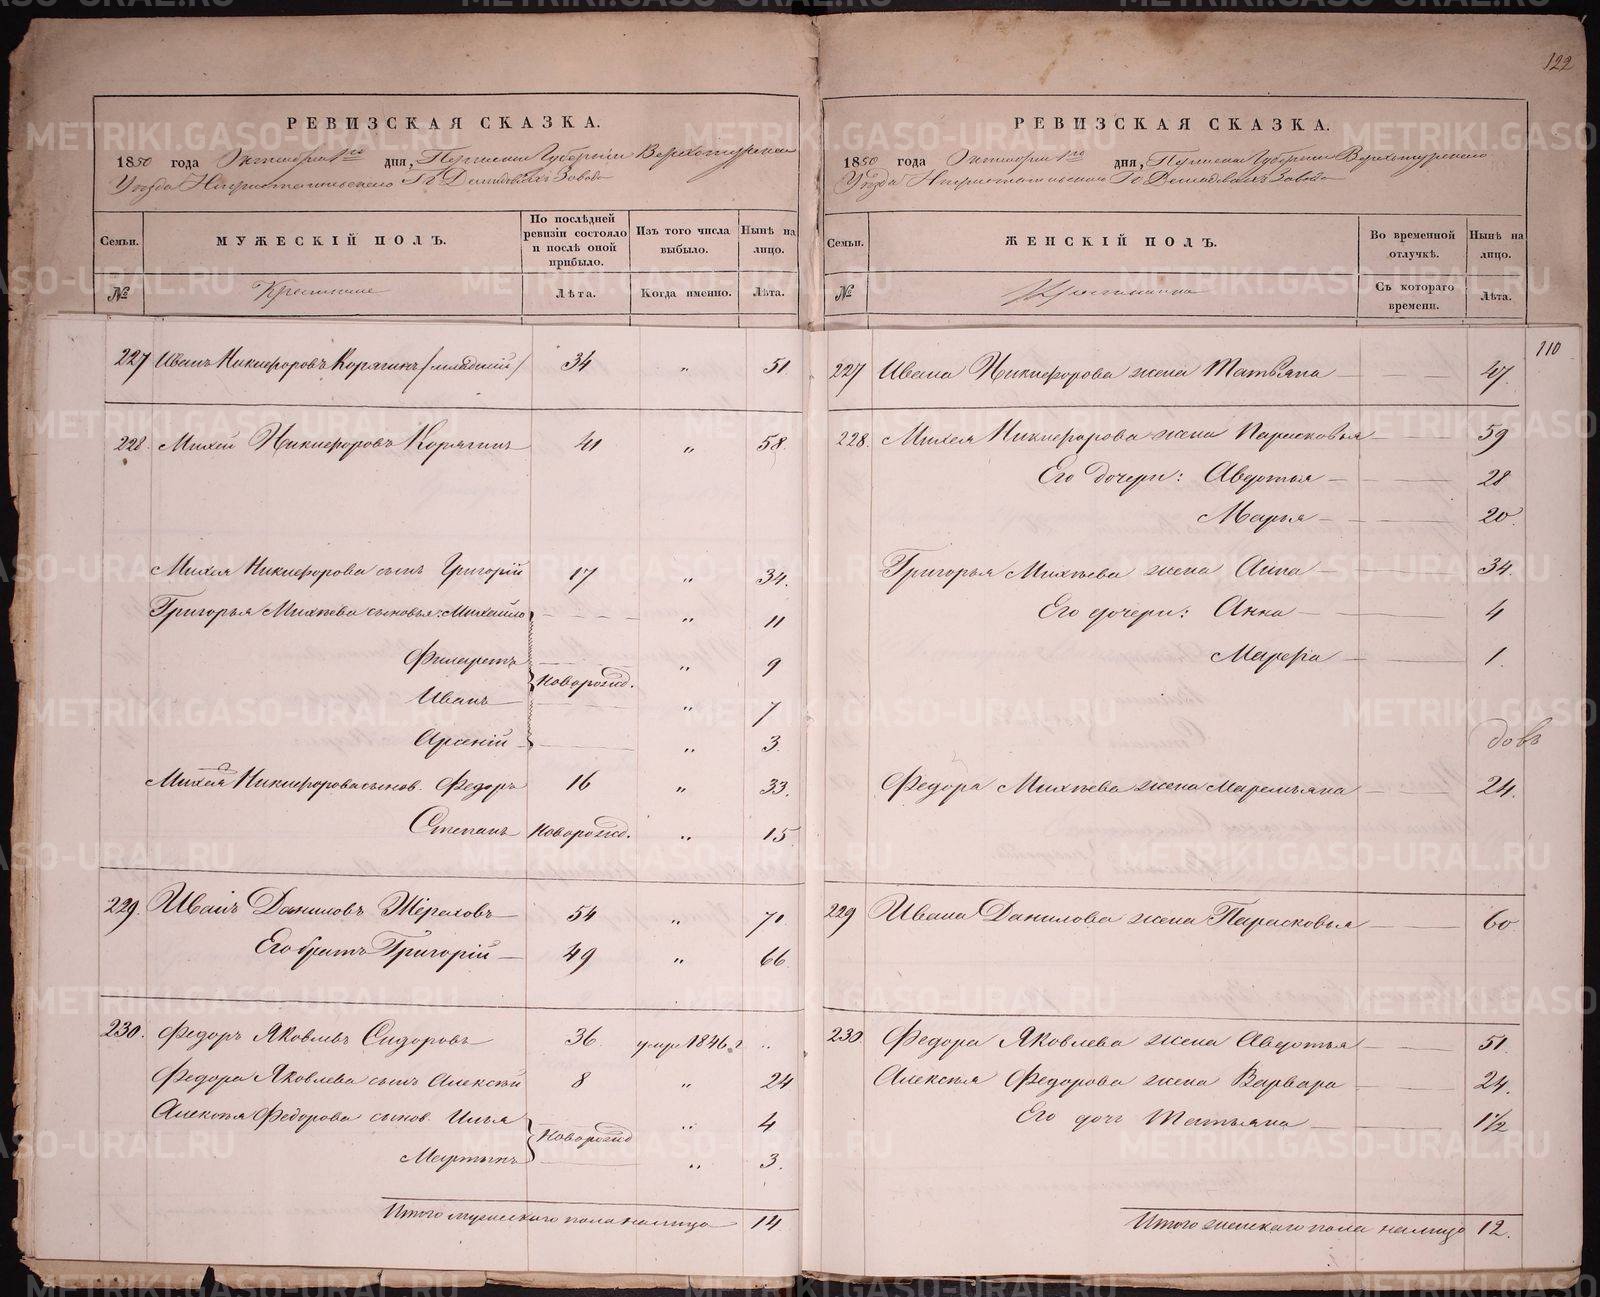 122
РЕВИЗСКАЯ СКАЗКА.
1850 года Октября 1го дня, Пермской Губернiи Верхотурскаго
Уѣзда Гг Демидовыхъ Завода
Семьи.
МУЖЕСКIЙ ПОЛЪ.
По послѣдней ревизiи состояло и послѣ оной прибыло.
Изъ того числа выбыло.
Нынѣ на лицо.
№
Крестьяне
Лѣта.
Когда именно.
Лѣта.
227 Иванъ Никифоровъ Корягинъ /младшiй/ 34 " 51.
228. Михей Никифоровъ Корягинъ 41 " 58.
Михея Никифорова сынъ Григорiй 17 " 34.
Григорья Михѣева сыновья: Михайло " 11
Филаретъ " 9
Новорожд.
Иванъ " 7
Арсенiй " 3.
Михея Никифорова сынов. Федоръ 16 " 33.
Степанъ Новорожд. " 15
229. Иванъ Даниловъ 54 " 70.
Его братъ Григорiй 49 " 66.
230. Федоръ Яковлевъ Сидоровъ 36 умре 1846. г ..
Федора Яковлева сынъ Алексѣй 8 " 24
Алексѣя Федорова сынов. Илья " 4
Новорожд
Мартынъ " 3.
Итого мужескаго пола на лицо 14.
РЕВИЗСКАЯ СКАЗКА.
1850 года Октября 1го дня, Пермской Губернiи Верхотурскаго
Уѣзда Гг Демидовыхъ Завода
Семьи.
ЖЕНСКIЙ ПОЛЪ.
Во временной отлучкѣ.
Нынѣ на лицо.
№
Съ котораго времени.
Лѣта.
110
227 Ивана Никифорова жена Татьяна 47.
228. Михея Никифорова жена Парасковья 59
Его дочери: Авдотья 28
Марья 20.
Григорья Михѣева жена Анна 34.
Его дочери: Анна 4
Марфа 1.
довъ
Федора Михѣева жена Маремьяна 24.
229 Ивана Данилова жена Парасковья 60
230 Федора Яковлева жена Авдотья 51.
Алексѣя Федорова жена Варвара 24.
Его дочь Татьяна 1 1/2
Итого женскаго пола на лицо 12.
METRIKI.GASO-URAL.RU